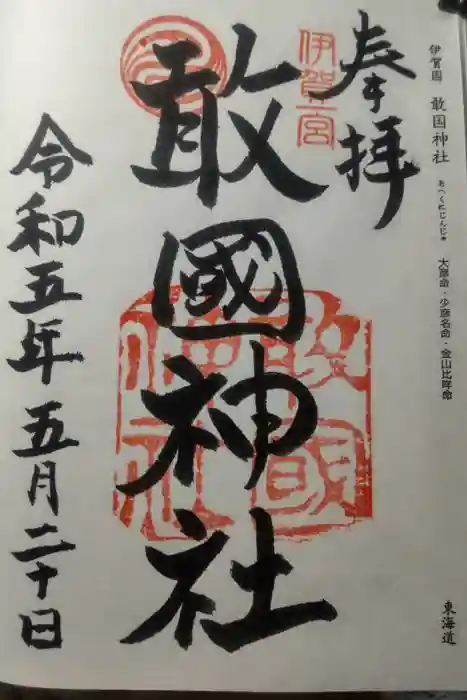 伊賀國 敢国神社 あへくにじんじゃ 大彦命・少彦名命・金山比咩命
東海道
奉拝
伊賀一宮
敢國神社
敢國神社
令和五年五月二十日